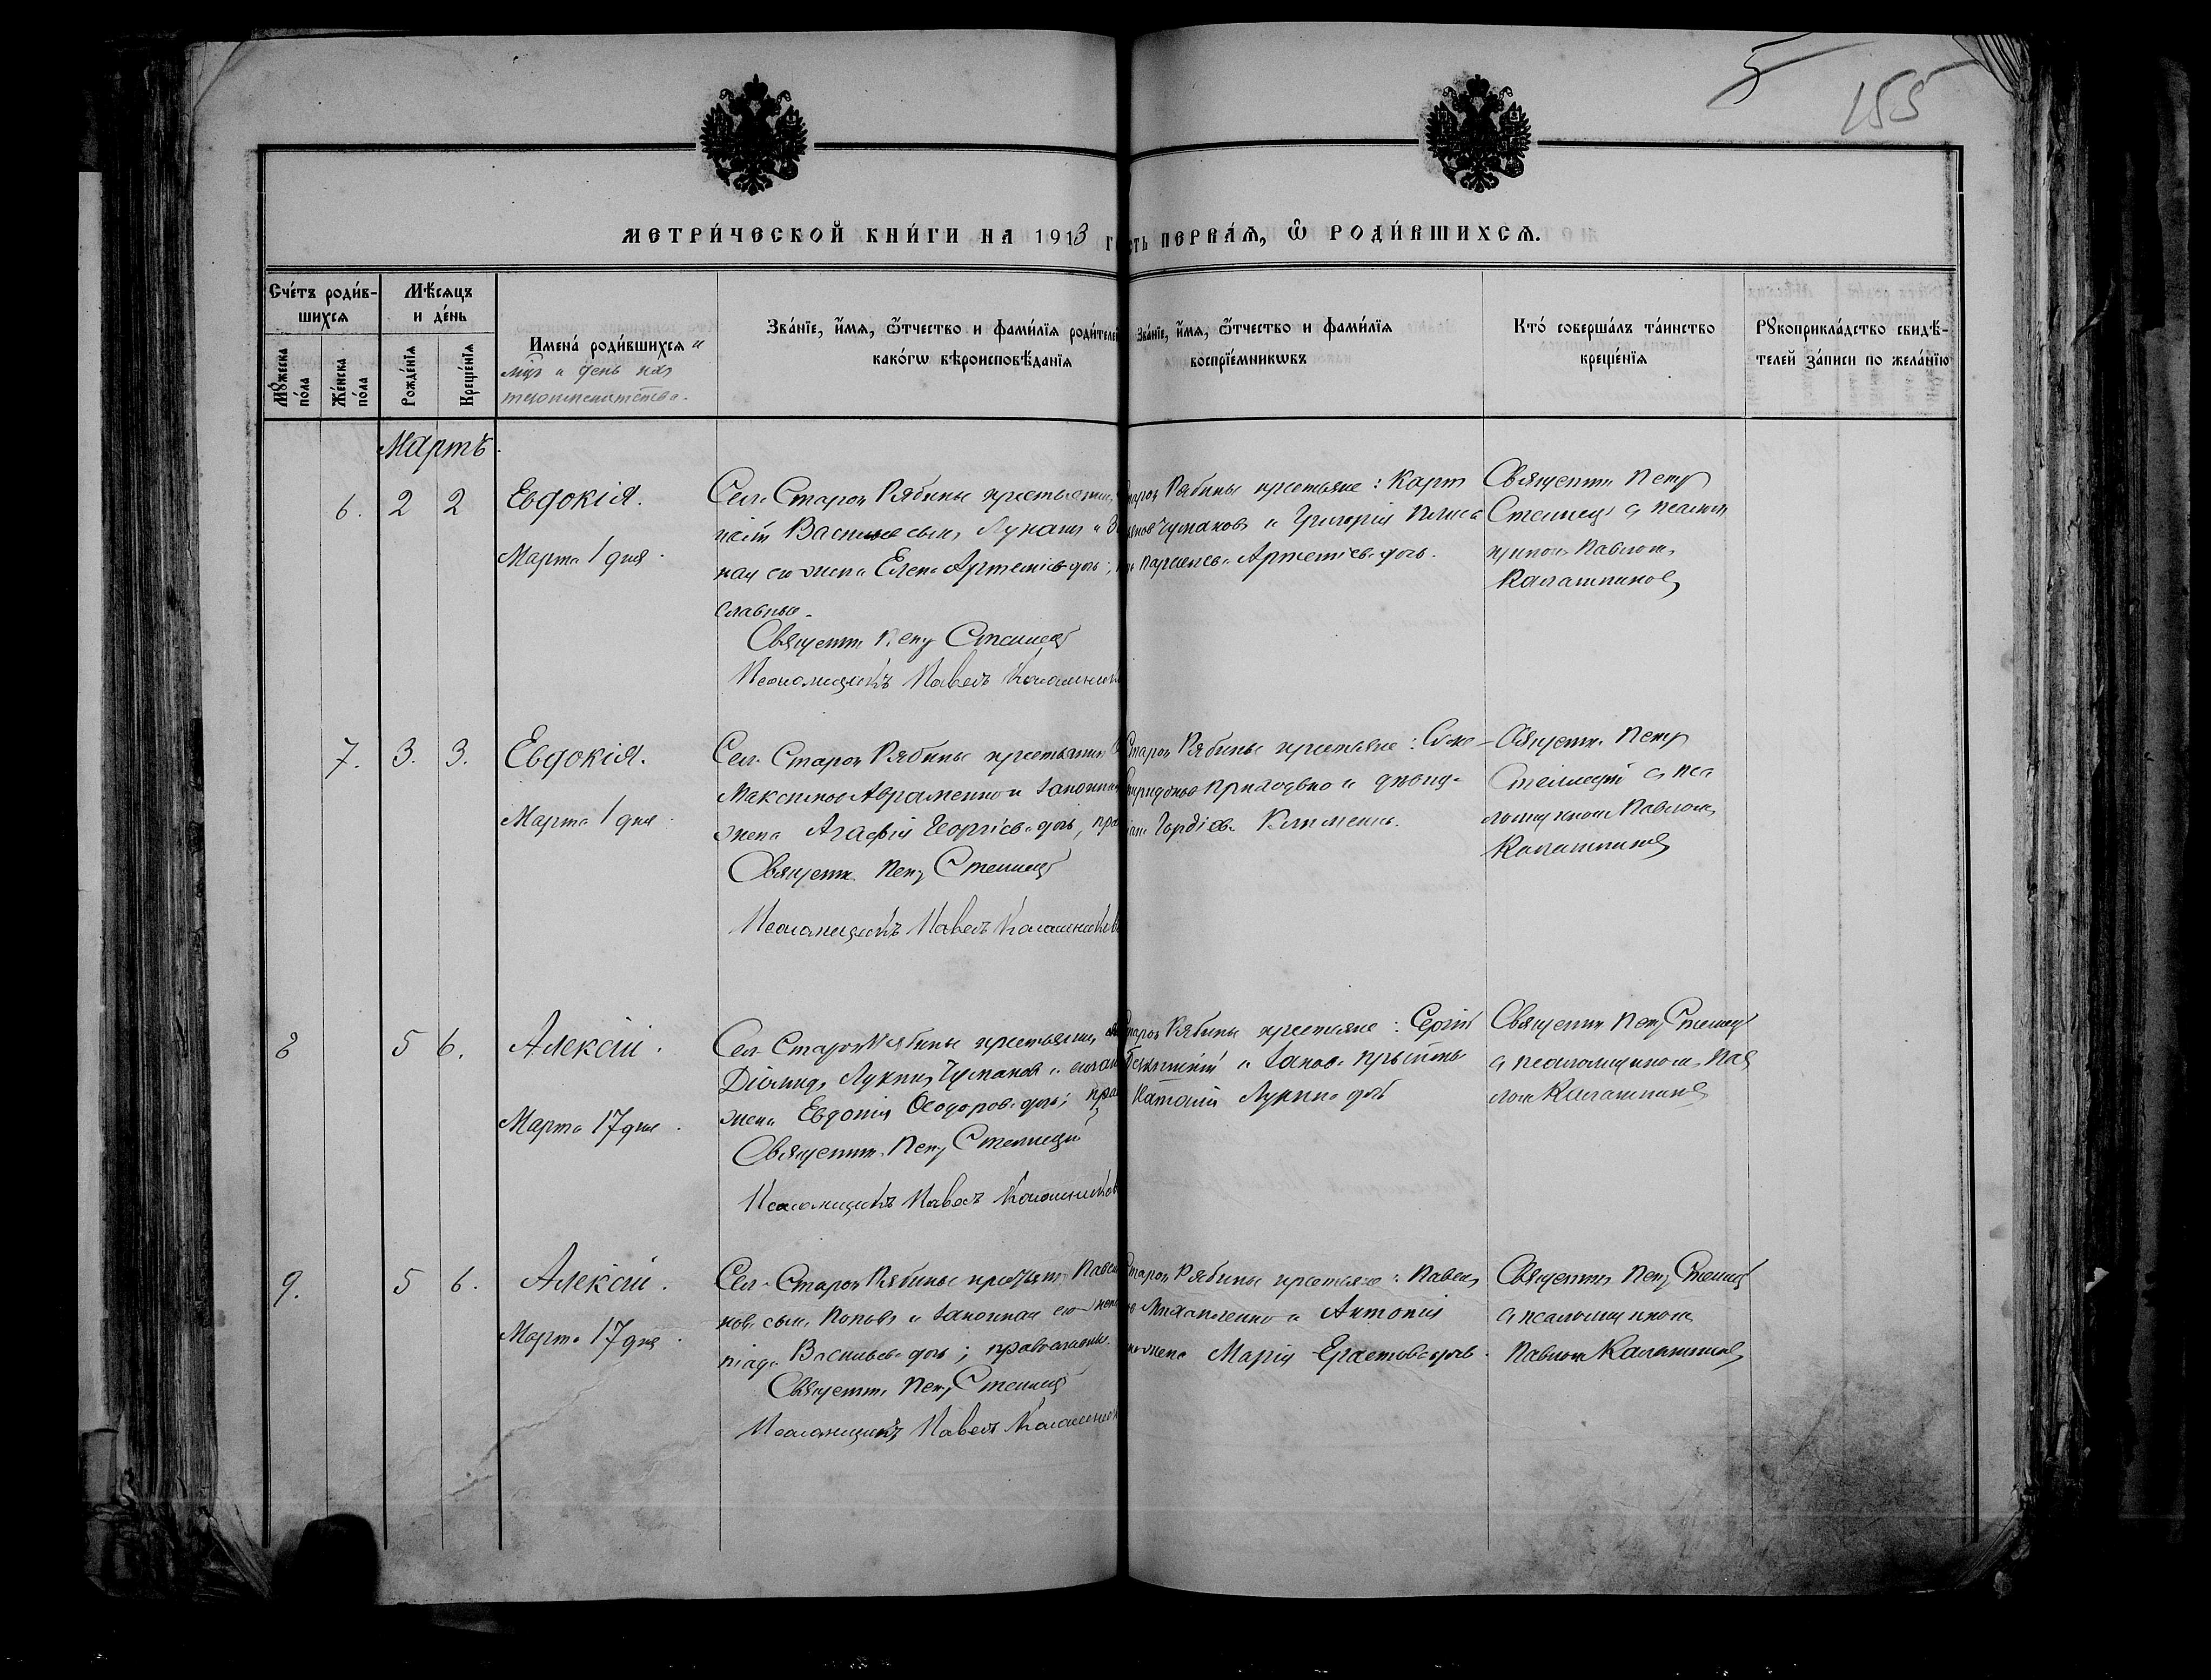 5
155
МЕТРИ́ЧЕСКОЙ КНИ́ГИ НА 1913 Г
СТЬ ПЕРВА́Я, Ѿ РОДИ́ВШИХСЯ.
Сче́тъ роди́в-
шихся
Мꙋжеска
по́ла
Же́нска
по́ла
Мѣ́сяцъ
и де́нь
Рожде́нїя
Креще́нїя
Имена́ роди́вшихся и
мцъ и день их
тезоименитства.
Зва́нїе, и́мя, ѻ́тчество и фами́лїя родителей
како́гѡ вѣроисповѣ́данїя
Зва́нїе, и́мя, ѻ́тчество и фами́лїя
воспрїе́мникѡвъ
Кто́ соверша́лъ та́инство
креще́нїя
Рꙋкоприкла́дство свидѣ́-
телей за́писи по жела́нїю
Мартъ.
6. 2 2
Евдокія.
Марта 1 дня.
Сел. Старой Рябины крестьянин
Васильев сын Лукаш и
ная его жена Елена Артеміева дочь;
славные.
Священник Петр Стеллецкій
Псаломщикъ Павелъ Калашников
Старой Рябины крестьяне: Карп
Чумаков и Григорія
Параскева Артеміева дочь.
Священник Петр
Стеллецкій с псалом
щиком Павлом
Калашников
7. 3. 3.
Евдокія.
Марта 1 дня.
Сел. Старой Рябины крестьянин
Максимов Авраменко и законная
жена Агафія Георгіева дочь, пра
Священник Петр Стеллецкій
Псаломщикъ Павелъ Калашниковъ
Старой Рябины крестьяне:
Спиридонов Приходько и дѣвица
Гордіева Клименко.
Священник Петр
Стеллецкій с пса
ломщиком Павлом
Калашников
8 5 6.
Алексій.
Марта 17 дня.
Сел. Старой Рябины крестьянин
Діомид Лукин Чумаков и законная
жена Евдокія Ѳеодорова дочь; пра
Священник Петр Стеллецкій
Псаломщикъ Павелъ Калашников
Старой Рябины крестьяне: Сергій
Наталія Лукина дочь
Священник Петр Стеллецкій
с псаломщиком Пав
лом Калашников
9. 5 6.
Алексій.
Марта 17 дня.
Сел. Старой Рябины крестьянин Павел
нов. сын Попов и законная его жена
Васильева дочь; православные.
Священник Петр Стеллецкій
Псаломщикъ Павелъ Калашников
Старой Рябины крестьяне: Павел
Михайленко и Антонія
жена Марія Ерастова дочь.
Священник Петр Стеллецкій
с псаломщиком
Павлом Калашников